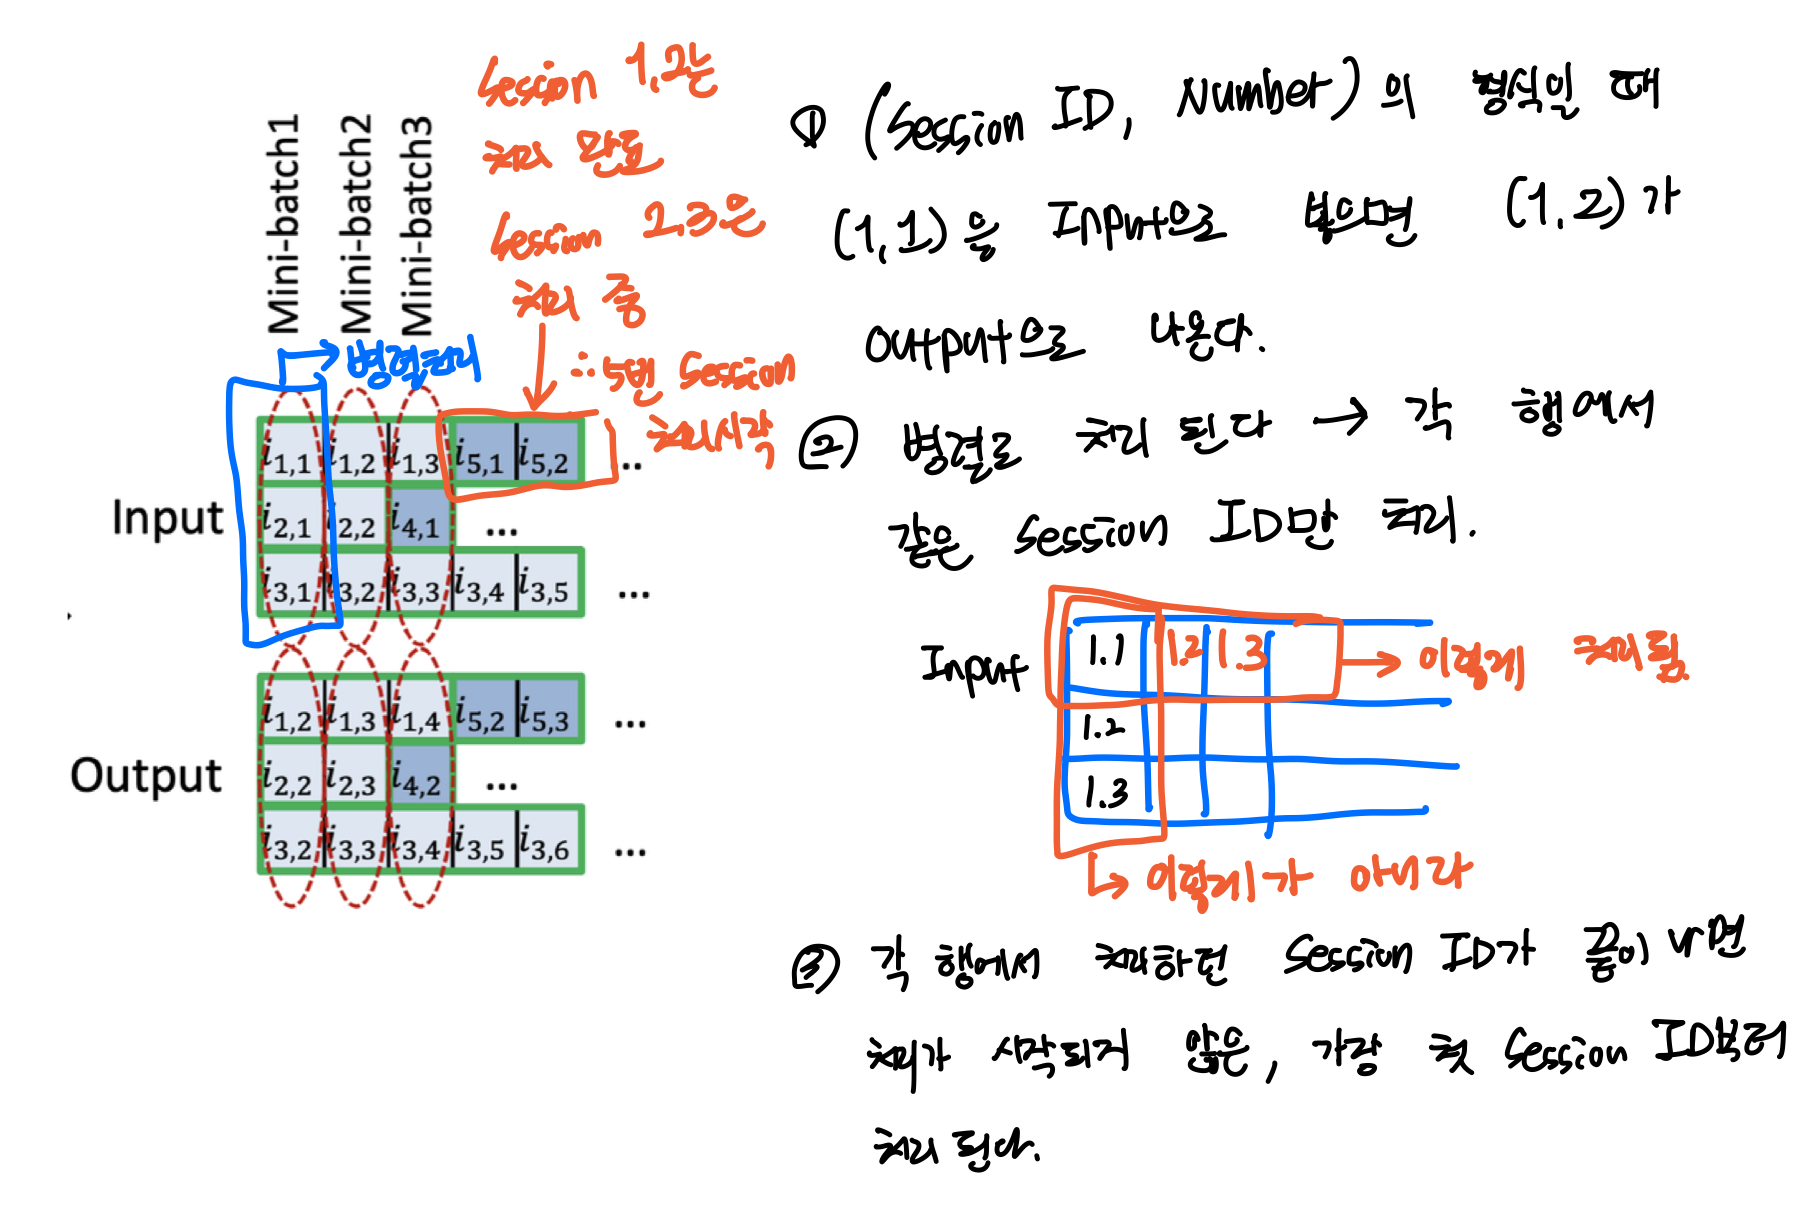 Mini-batch1
Mini-batch2
Mini-batch3
Session 1,2는
처리 완료
Session 2.3은
처리 중
∴ 5번 Session
처리시작
병렬처리
Input
i1,1 i1,2 i1,3 i5,1 i5,2 ..
i2,1 i2,2 i4,1 ...
i3,1 i3,2 i3,3 i3,4 i3,5 ...
Output
i1,2 i1,3 i1,4 i5,2 i5,3 ...
i2,2 i2,3 i4,2 ...
i3,2 i3,3 i3,4 i3,5 i3,6 ...
① (Session ID, Number)의 형식일 때
(1,1)을 Input으로 넣으면 (1,2)가
output으로 나온다.
② 병렬로 처리 된다 → 각 행에서
같은 Session ID만 처리.
Input
1.1 1.2 1.3
→ 이렇게 처리됨
1.2
1.3
↳ 이렇게가 아니라
③ 각 행에서 처리하던 Session ID가 끝이 나면
처리가 시작되지 않은, 가장 첫 Session ID부터
처리 된다.